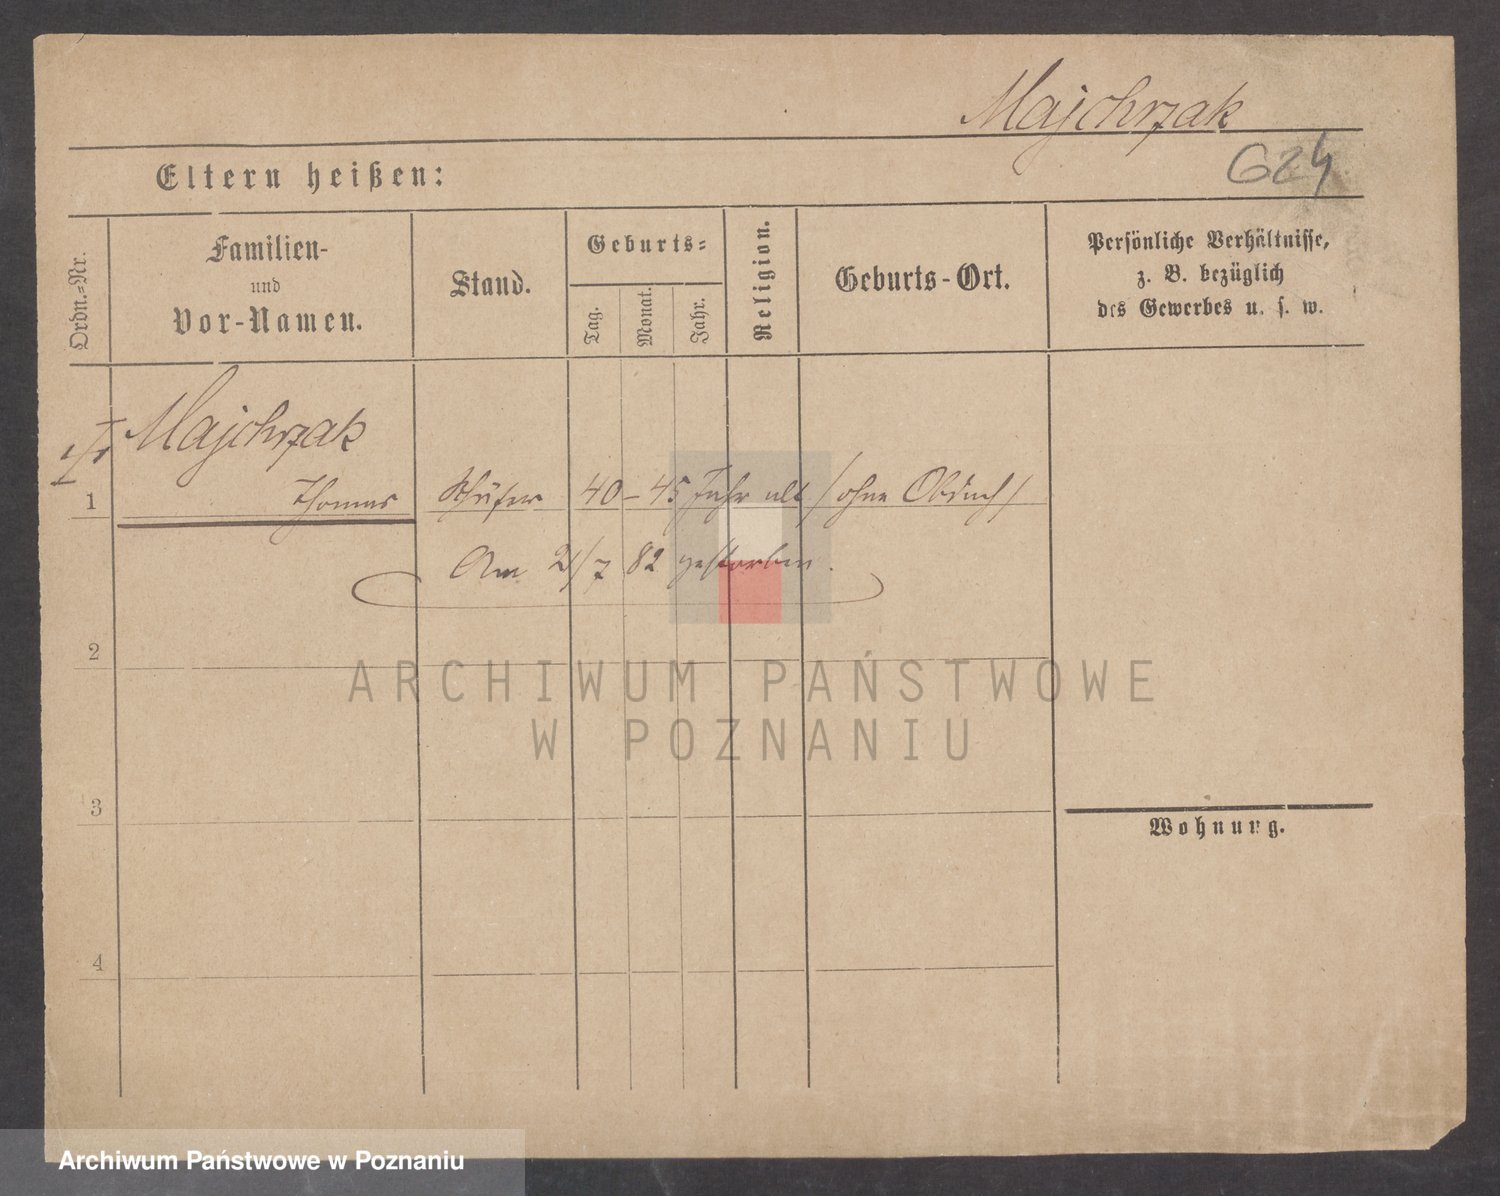 Majchrzak
624
Eltern heißen:
Ordn.-Nr.
Familien-
und
Vor-Namen.
Stand.
Geburts-
Tag.
Monat.
Jahr.
Religion.
Geburts-Ort.
Persönliche Verhältnisse,
z. B. bezüglich
des Gewerbes u. s. w.
Majchrzak
1 Thomas Schäfer 40–45 Jahr alt / ohne /
Am 21/7 82 gestorben.
2
3
4
Wohnung.
ARCHIWUM PAŃSTWOWE
W POZNANIU
Archiwum Państwowe w Poznaniu